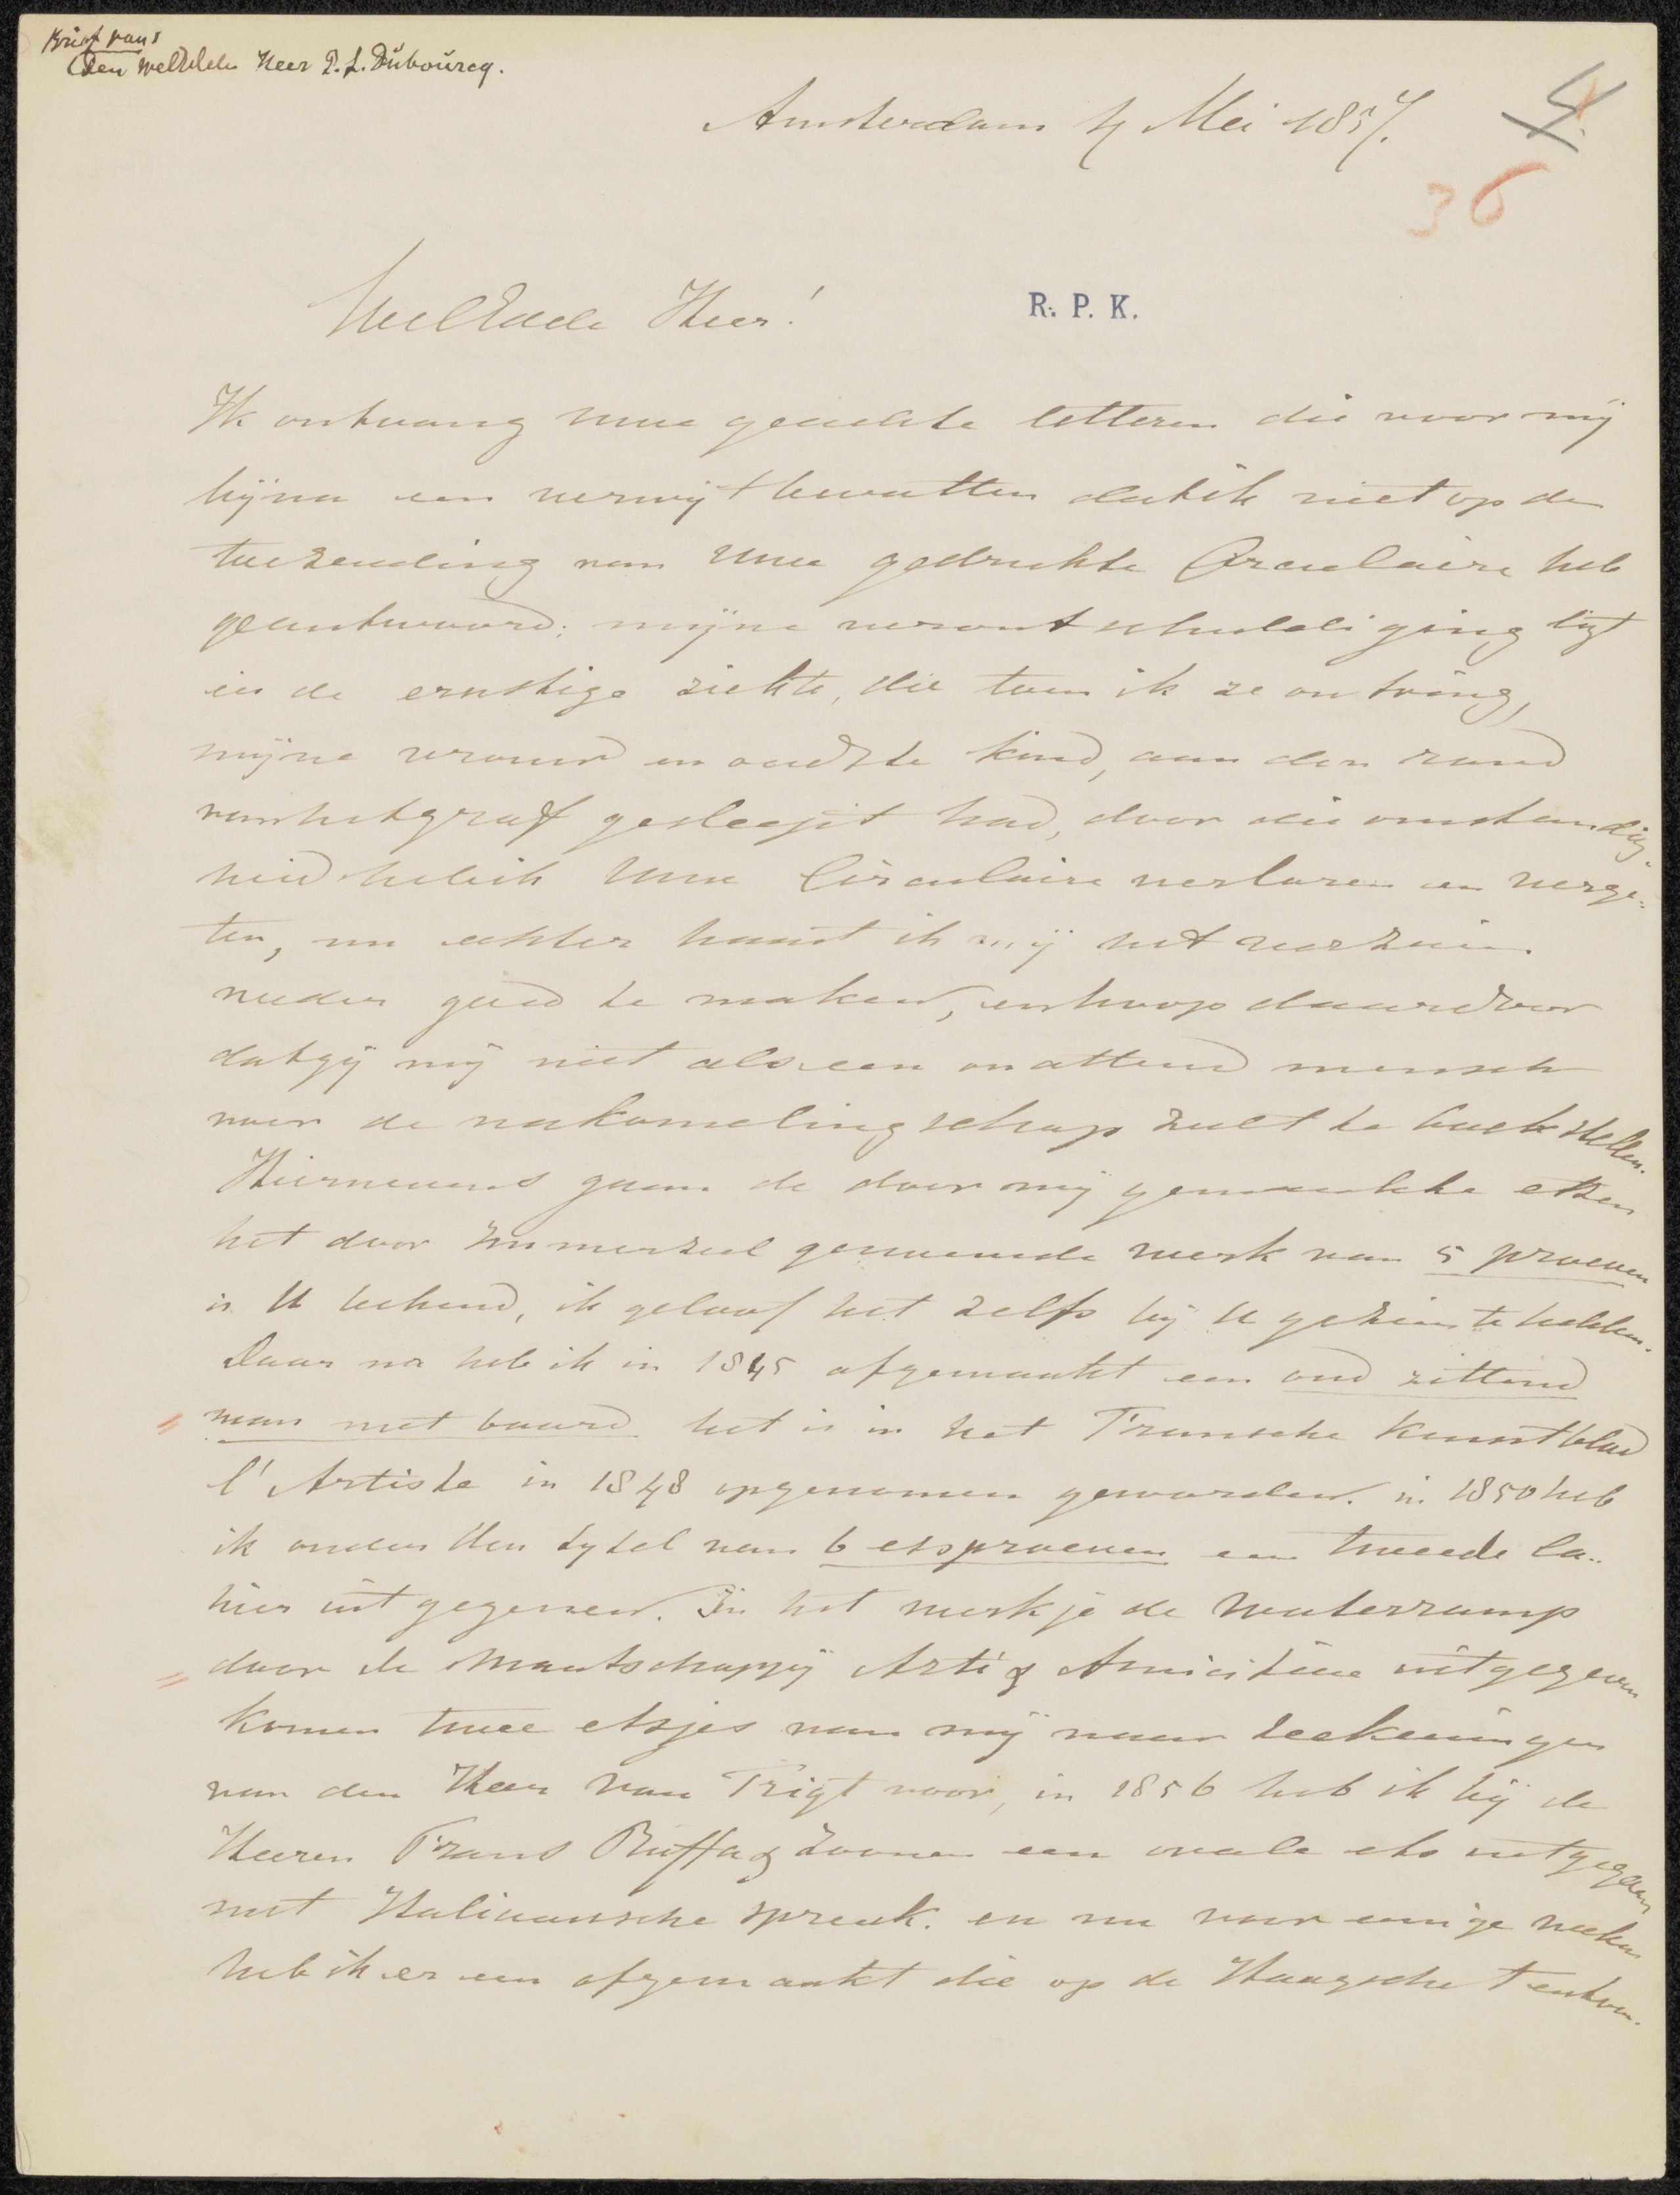 Brief van:
(Den WelEdelen Heer P. L. Dubourcq.
Amsterdam 4 Mei 1857.
4.
36
WelEdele Heer!
R. P. K.
Ik ontvang uwe geachte letteren die voor mij
bijna een verwijt bevatten dat ik niet op de
toezending van uwe gedrukte Circulaire heb
geantwoord; mijne verontschuldiging ligt
in de ernstige ziekte, die toen ik ze ontving,
mijne vrouw en oudste kind, aan den rand
van het graf gesleept had, door die omstandig-
heid heb ik uwe Circulaire verloren en verge-
ten, nu echter haast ik mij het verzuim
weder goed te maken, en hoop daardoor
dat gij mij niet als een onattend mensch
voor de nakomelingschap zult te boek stellen.
Hiernevens gaan de door mij gemaakte etsen
het door Immerzeel genoemde werk van 5 proeven
is U bekend, ik geloof het zelfs bij U gezien te hebben.
Daar na heb ik in 1845 afgemaakt een oud zittend
man met baard het is in het Fransche Kunstblad
l'Artiste in 1848 opgenomen geworden. in 1850 heb
ik onder den tytel van 6 etsproeven een tweede ca-
hier uitgegeven. In het werkje de Watersramp
door de Maatschappij Arti & Amicitiae uitgegeven
komen twee etsjes van mij naar teekeningen
van den Heer van Trigt voor, in 1856 heb ik bij de
Heeren Frans Buffa & Zoonen een ovale ets uitgegeven
met Italiaansche spreuk. en nu voor eenige weken
heb ik er een afgemaakt die op de Haagsche Tentoon-